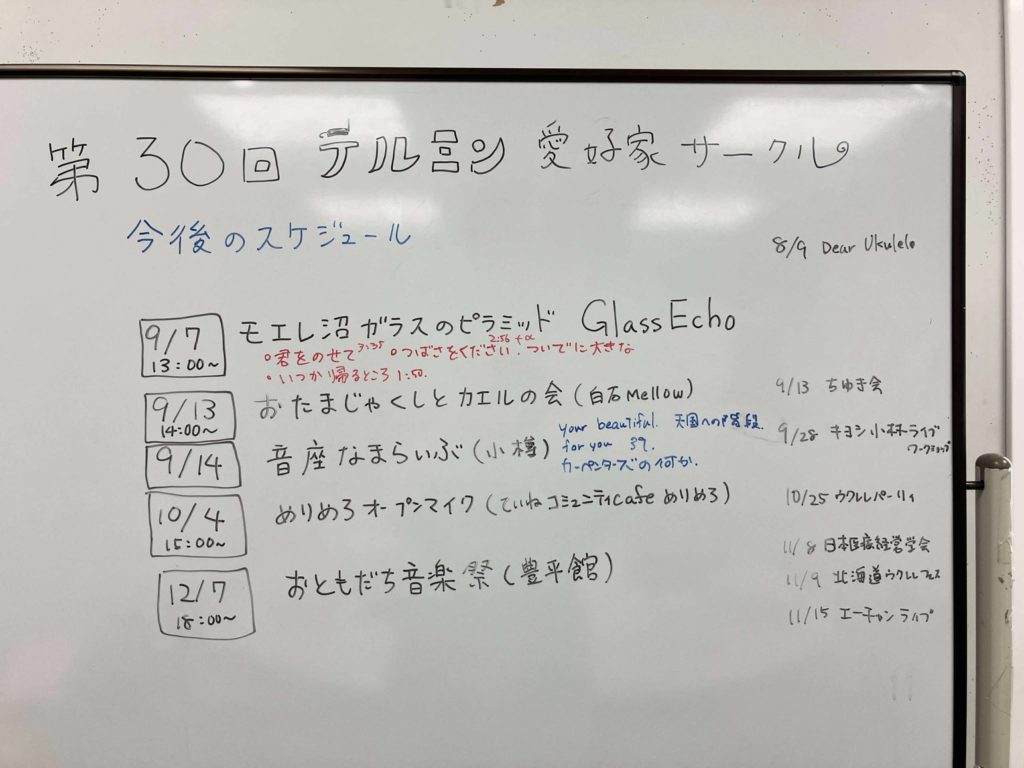 第30回 テルミン 愛好家 サークル
今後のスケジュール
8/9 Dear Ukulele
9/7 13:00~ モエレ沼ガラスのピラミッド GlassEcho
○君をのせて 3:35 ○つばさをください. 2:56+α ついでに大きな
○いつか帰るところ 1:50.
9/13 14:00~ おたまじゃくしとカエルの会(白石Mellow)
9/14 音座なまらいぶ(小樽)
your beautiful. 天国への階段.
for you
カーペンターズの何か.
10/4 15:00~ めりめろオープンマイク(ていねコミュニティcafeめりめろ)
12/7 18:00~ おともだち音楽祭(豊平館)
9/13 ちゆき会
9/28 キヨシ小林ライブ
ワークショップ
10/25 ウクレレパーリィ
11/8 日本医療経営学会
11/9 北海道ウクレレフェス
11/15 エーチャンライブ